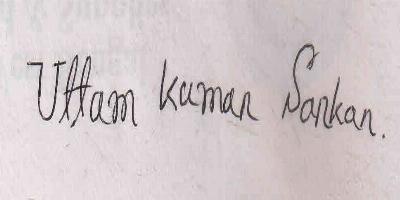 Uttam Kumar Sarkar.